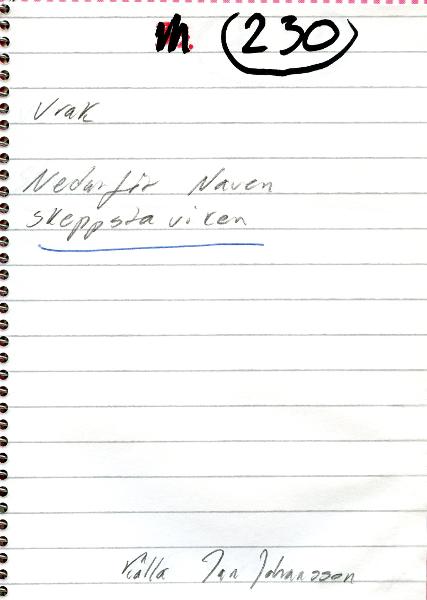 (230)
Vrak
Nedanför Naven
skeppsta viken
Källa Jan Johansson